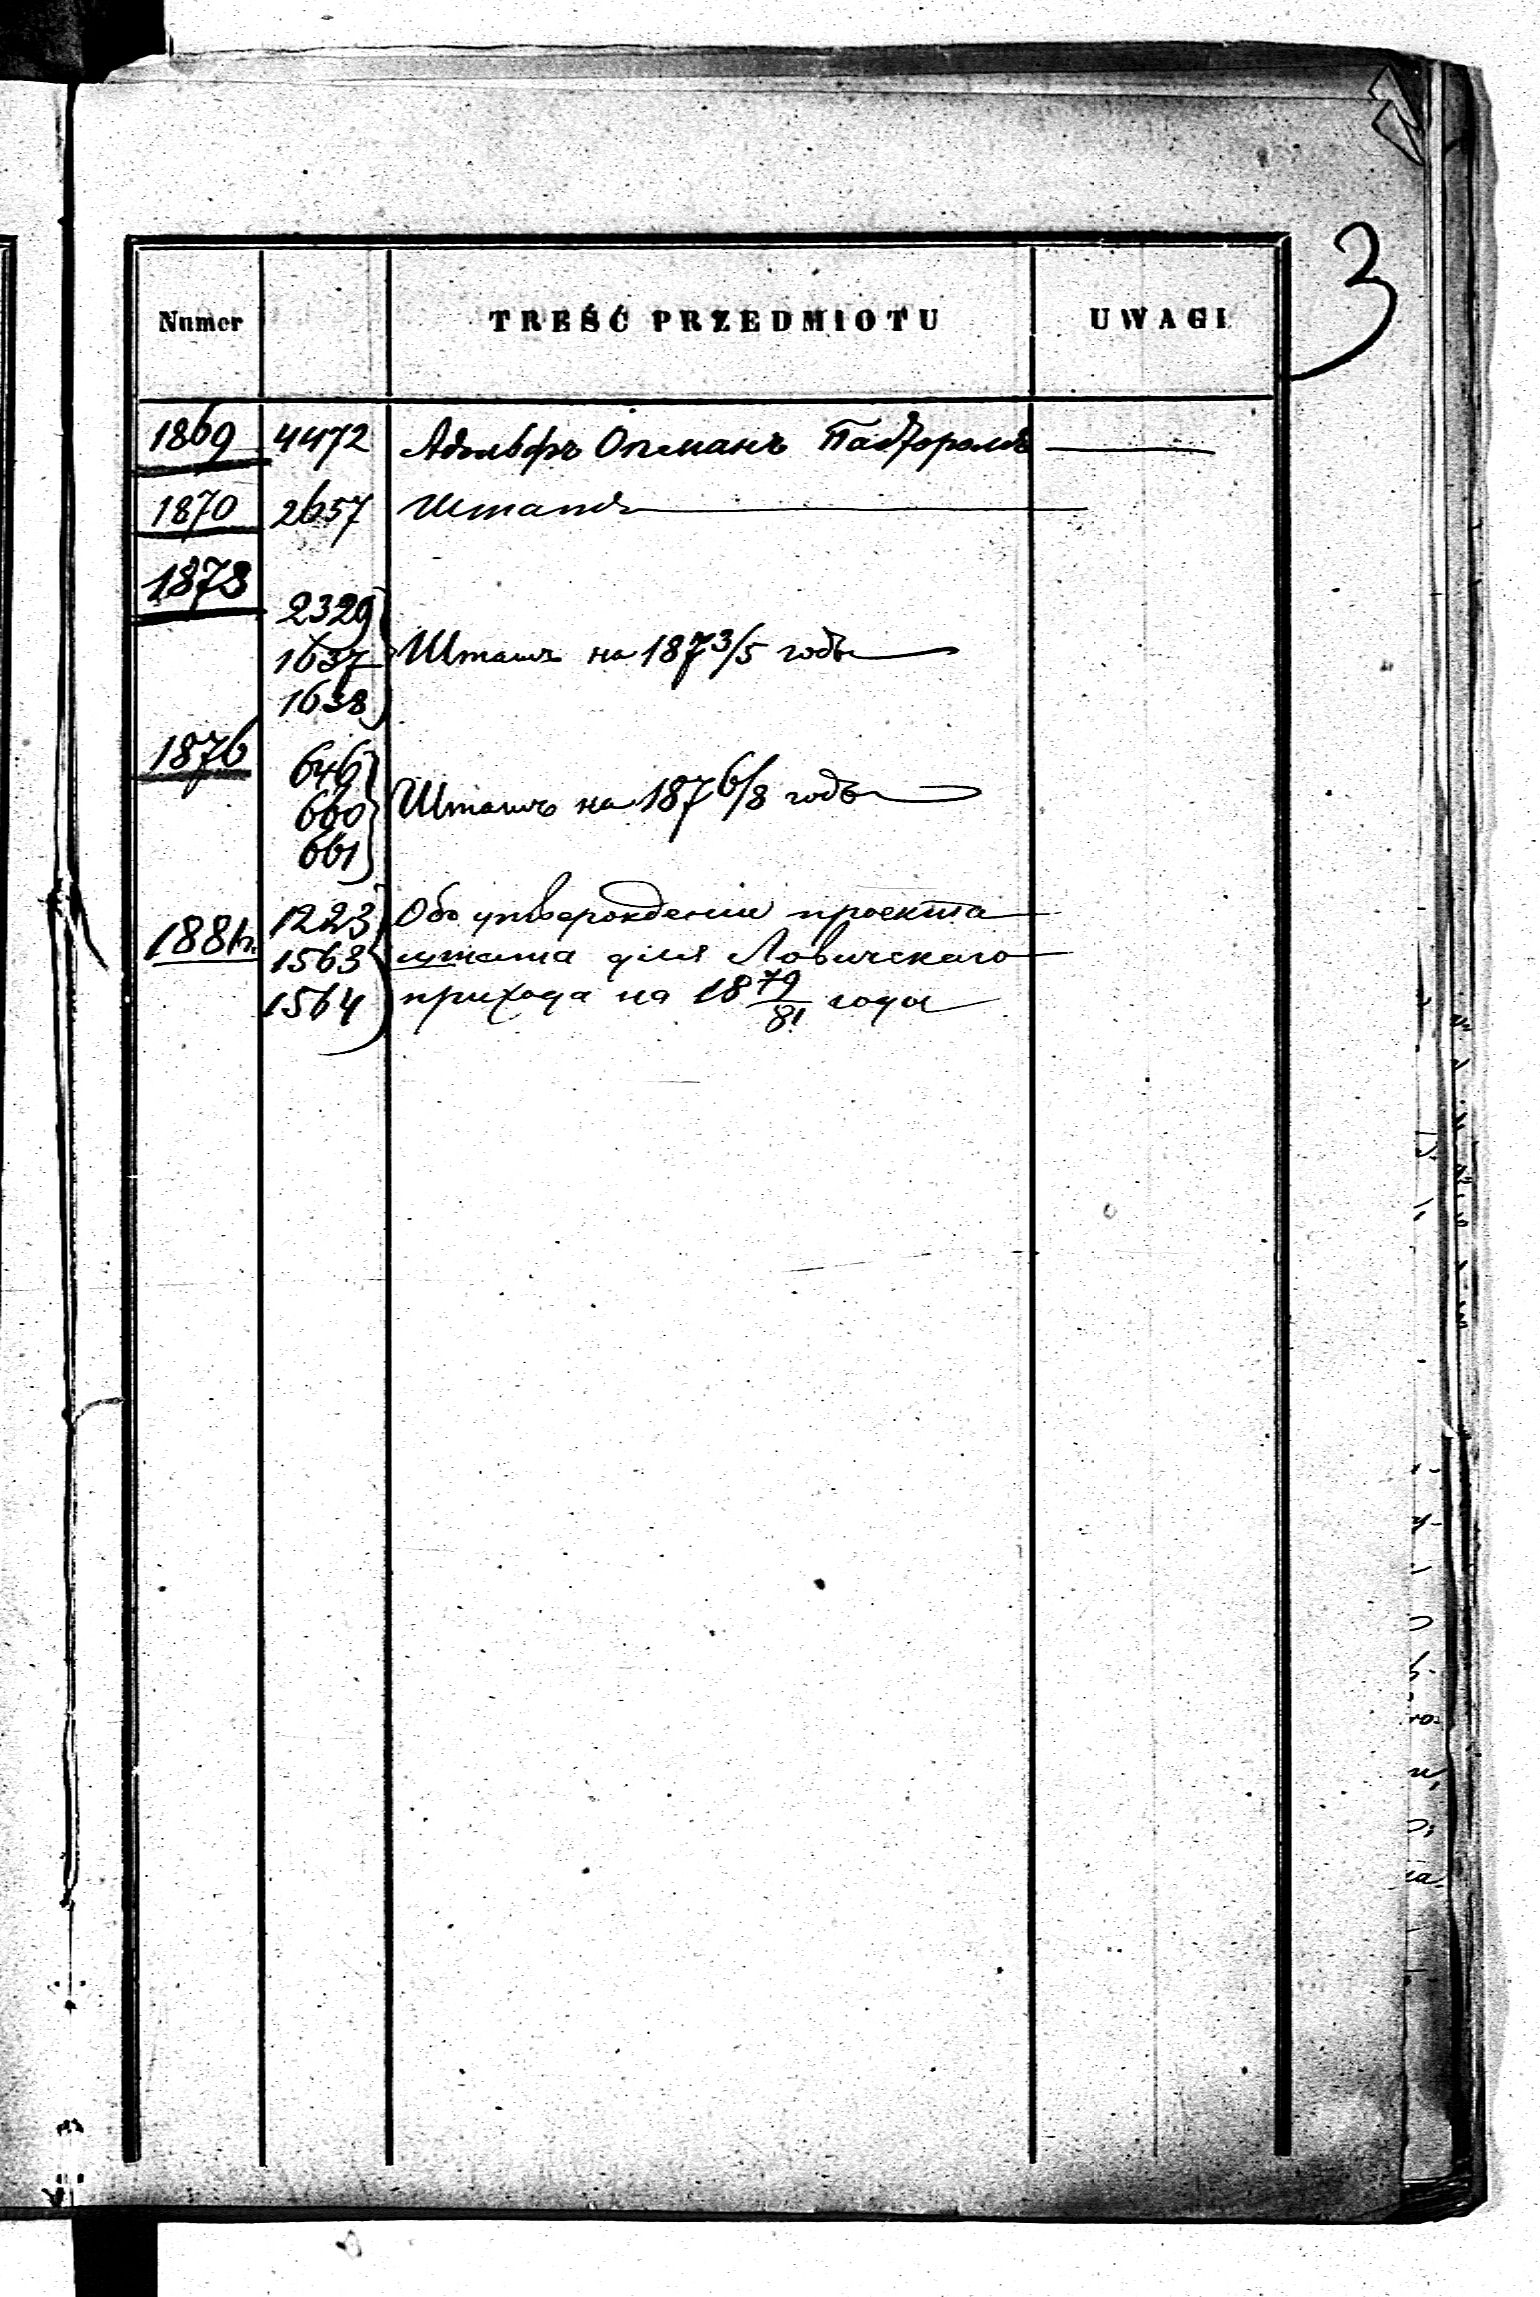 3
Numer TREŚĆ PRZEDMIOTU UWAGI
1869 4472 Адольфъ Опманъ
1870 2657 Штатъ
1873
2329
1637 Штатъ на 187 3/5 годы
1638
1876
646
660 Штатъ на 187 6/8 годы
661
1223 Объ утвержденіи проекта
1881 г. 1563 штата для Ловичскаго
1564 прихода на 18 79/81 года